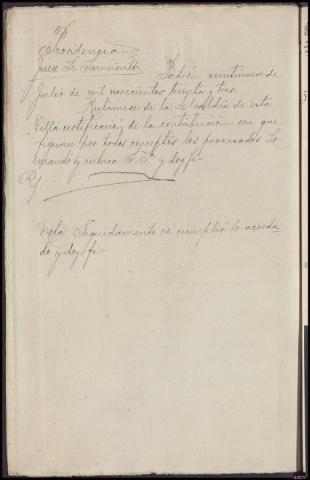 Providencia
Juez Sr. Sarmiento
Padrón veintinueve de
Julio de mil novecientos treinta y tres.
Reclámese de la Alcaldía de esta
Villa certificación de la contribución con que
figuran por todos conceptos los procesados. Lo
mandó y rubrica S. Sª. y doy fé=
Nota Seguidamente se cumplió lo acorda-
do y doy fé=